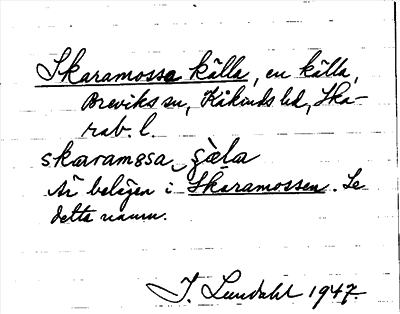 Skaramossa källa, en källa,
Breviks sn, Kåkinds hd, Ska-
rab. l.
skaramɔsa ɕæla
Är belägen i Skaramossen. Se
detta namn.
I. Lundahl 1947.